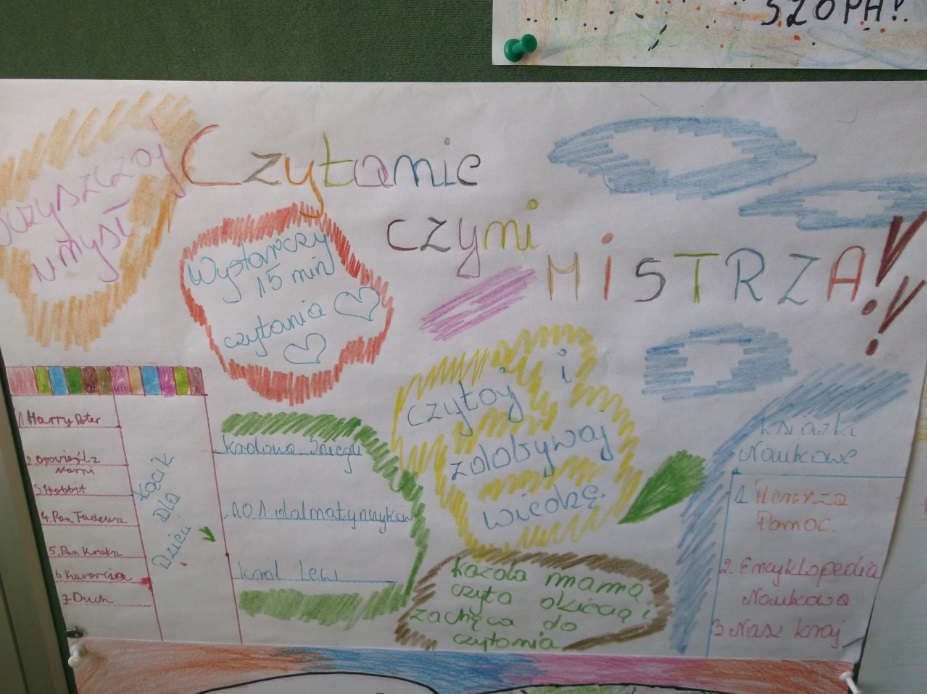 SZOPA!.
Oczyszczaj
umysł
Czytanie
czyni
MiSTRZA!!
Wystarczy
15 min
czytania
czytaj i
zdobywaj
wiedzę.
1 Harry Poter
2. Opowieśl z
Narni
3 Hobbit
4. Pan Tadeusz
5. Pan Kleks
7 Duch
Kocik
Dla
Dzieci
Krolowa Śniegu
101 dalmatynczyków
krol lew
Każda mama
czyta dziecią i
zachęca do
czytania
Książki
Naukowe
1. Pierwsza
Pomoc.
2. Encyklopedia
Naukowa
3 Nasz kraj